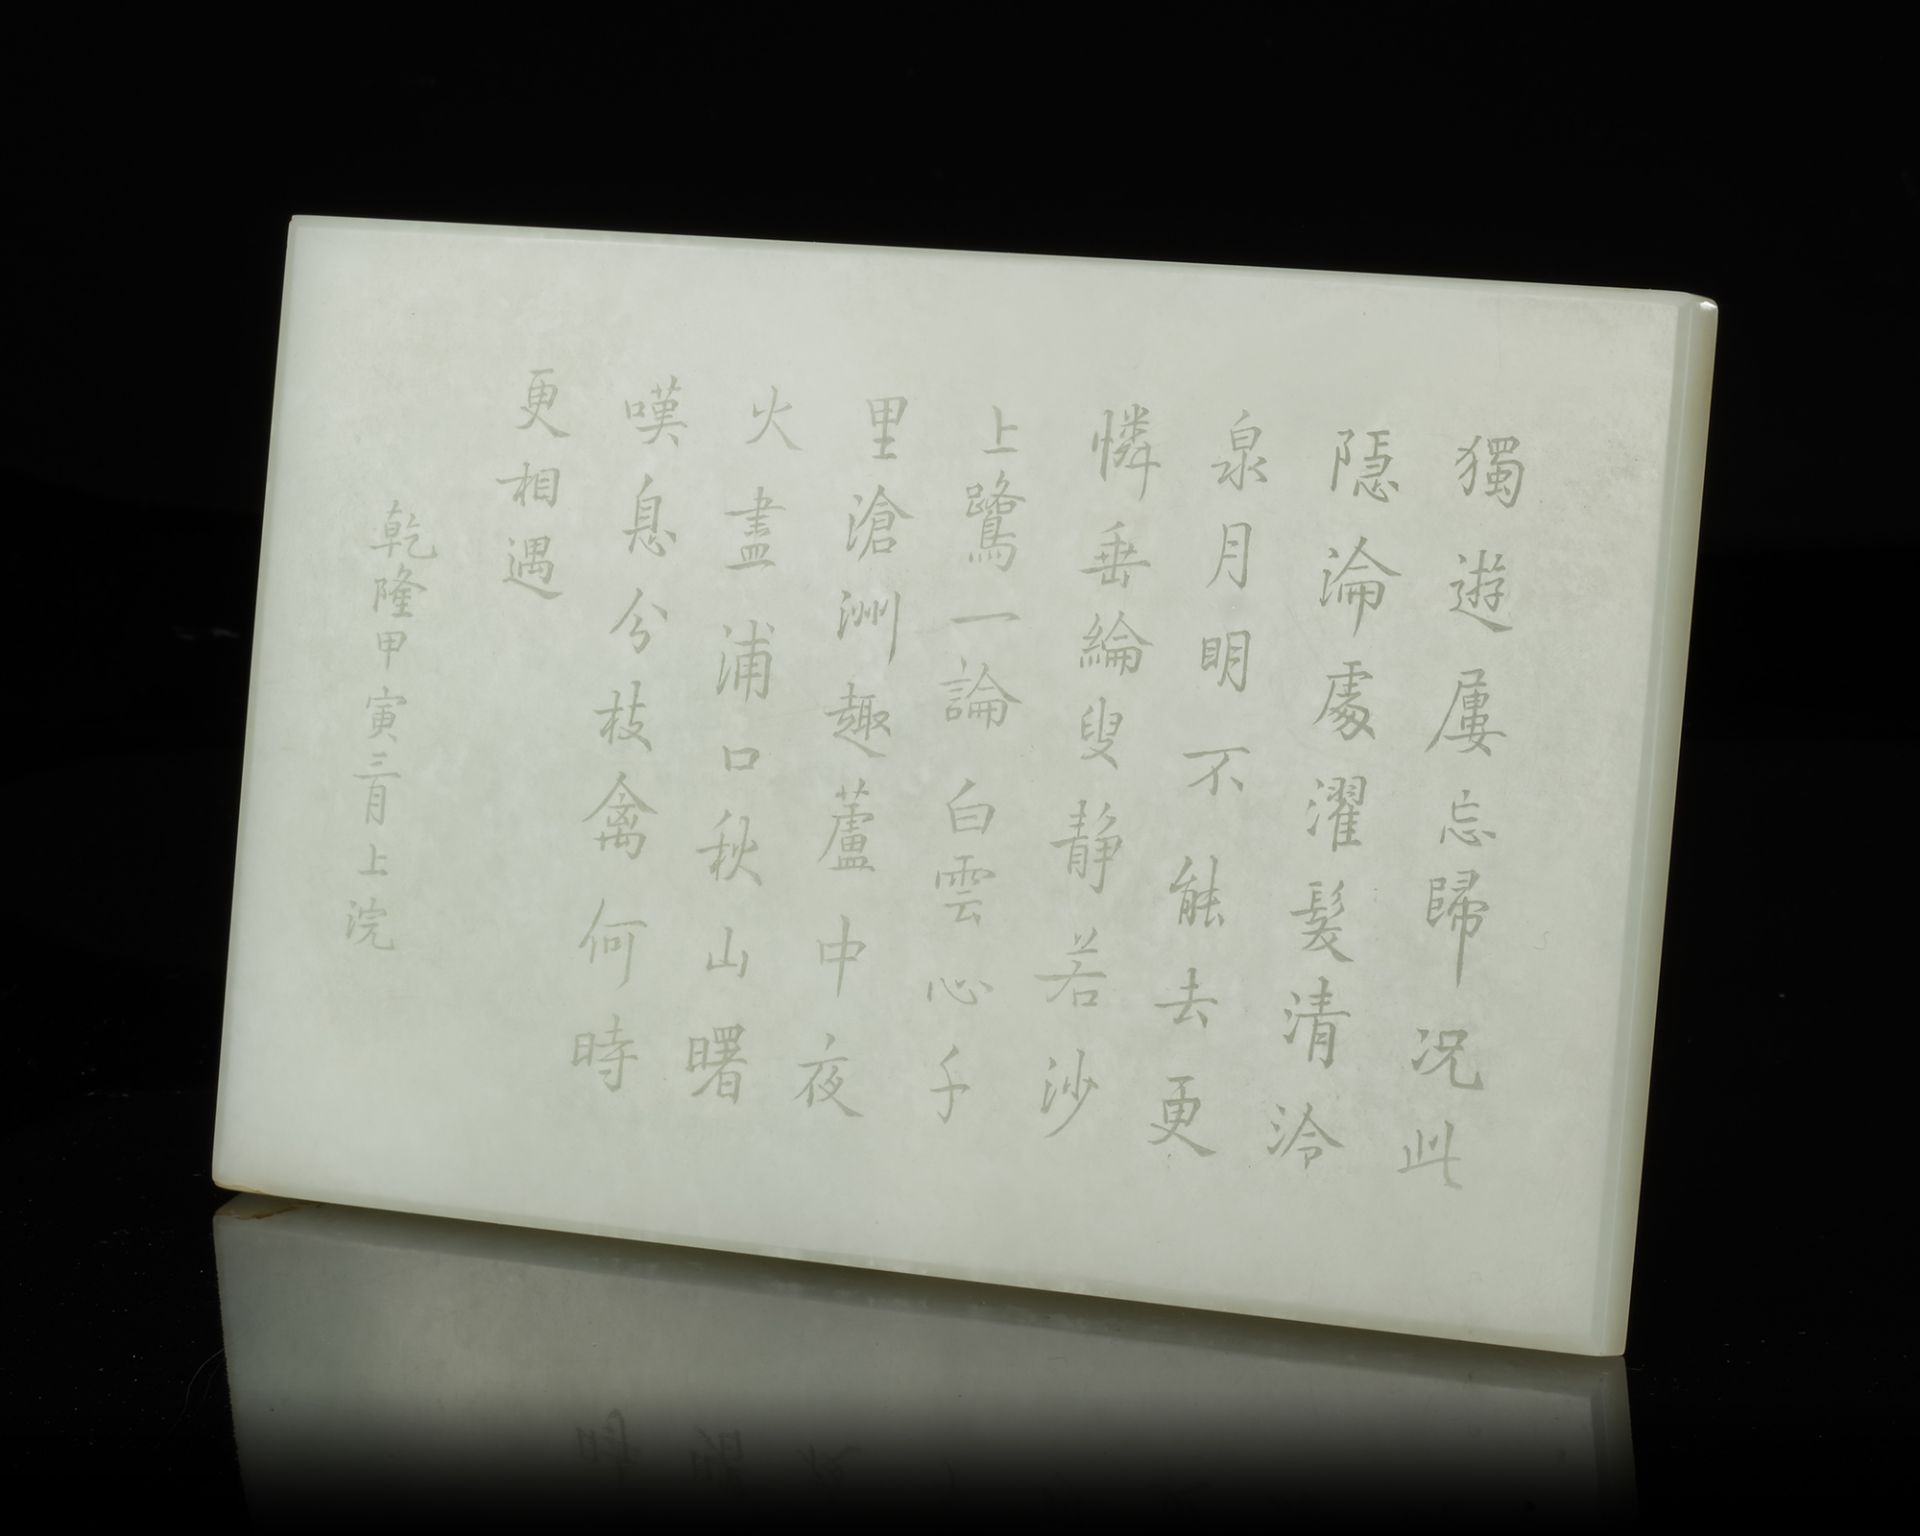 獨遊屢忘歸况此
隱淪處濯髮清泠
泉月明不能去更
憐垂綸叟静若沙
上鷺一論白雲心千
里滄洲趣蘆中夜
火盡浦口秋山曙
嘆息分枝禽何時
更相遇
乾隆甲寅三月上浣